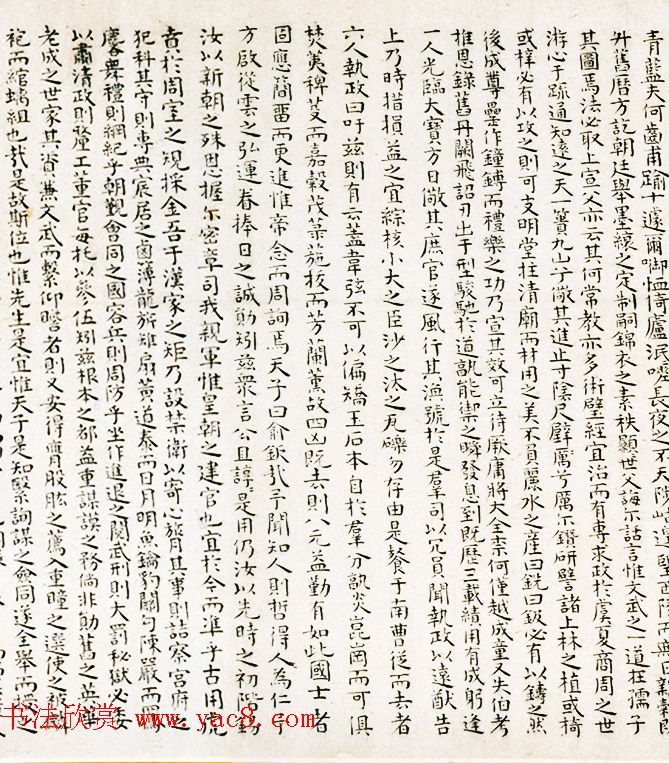 青藍夫何齒甫踰十遽爾啣恤借廬涙噎長夜之不天隙
舛舊曆方訖朝廷舉墨縗之定制嗣錦衣之素秩顯世父誨示話言惟文武之一道在孺子
其圖焉法必取上宣父亦云其何常教亦多術璧經宜治而有專求政於虞夏商周之世
游心于疏通知遠之天一簣九山子儆其進止寸陰尺璧厲子厲示鑽研譬諸上林之植或椅
或梓必有以攻之則可支明堂柱清廟而材用之美不負麗水之產曰銑曰鈑必有以鑄之然
後成尊罍作鐘鎛而禮樂之功乃宣其效可立待厥庸將大全柰何僅越成童又失伯考
推恩錄舊丹闕飛詔刃出于型駿馳於道孰能禦之瞬發息到既歷三載績用有成躬逢
一人光臨大寶方日儆其庶官遂風行其渙號於是羣司以冗員聞執政以遠猷告
上乃時措損益之宜綜核小大之臣沙之汰之瓦礫勿存由是餐于南曹從而去者
六人執政曰吁兹則有云蓋韋弦不可以偏矯玉石本自於羣分孰炎崑崗而可俱
焚荑稗芟而嘉穀茂菉葹拔而芳蘭薰故四凶既去則八元益勤有如此國士者
固應簡畱而更進惟帝念而周詢焉天子曰俞欽哉予聞知人則哲得人為仁予
方啟從雲之弘運眷捧日之誠勛矧兹眾言公且諄是用仍汝以先時之初階勖
汝以新朝之殊恩握尔密章司我親軍惟皇朝之建官也宜於今而準乎古用虎
賁於周室之規採金吾于漢家之矩乃設禁衛以寄心膂其事則詰察宮府
犯科其守則專典宸居之鹵簿龍旂雉扇黃道泰而日月明魚鑰豹關勾陳嚴而羆
麐舞禮則綱紀乎朝覲會同之國容兵則周防乎坐作進退之閱武刑則大罰秘獄必委
以肅清政則釐工董官每托以參伍矧兹根本之都益重謀謨之務倘非勛舊之英華
老成之世家其資兼文武而繫仰瞻者則又安得膺股肱之薦入重瞳之選使之被
袍而綰螭組也哉是故斯位也惟先生是宜惟天子是知繄詢謀之僉同遂全舉而授之
书法欣赏 www.yac8.com